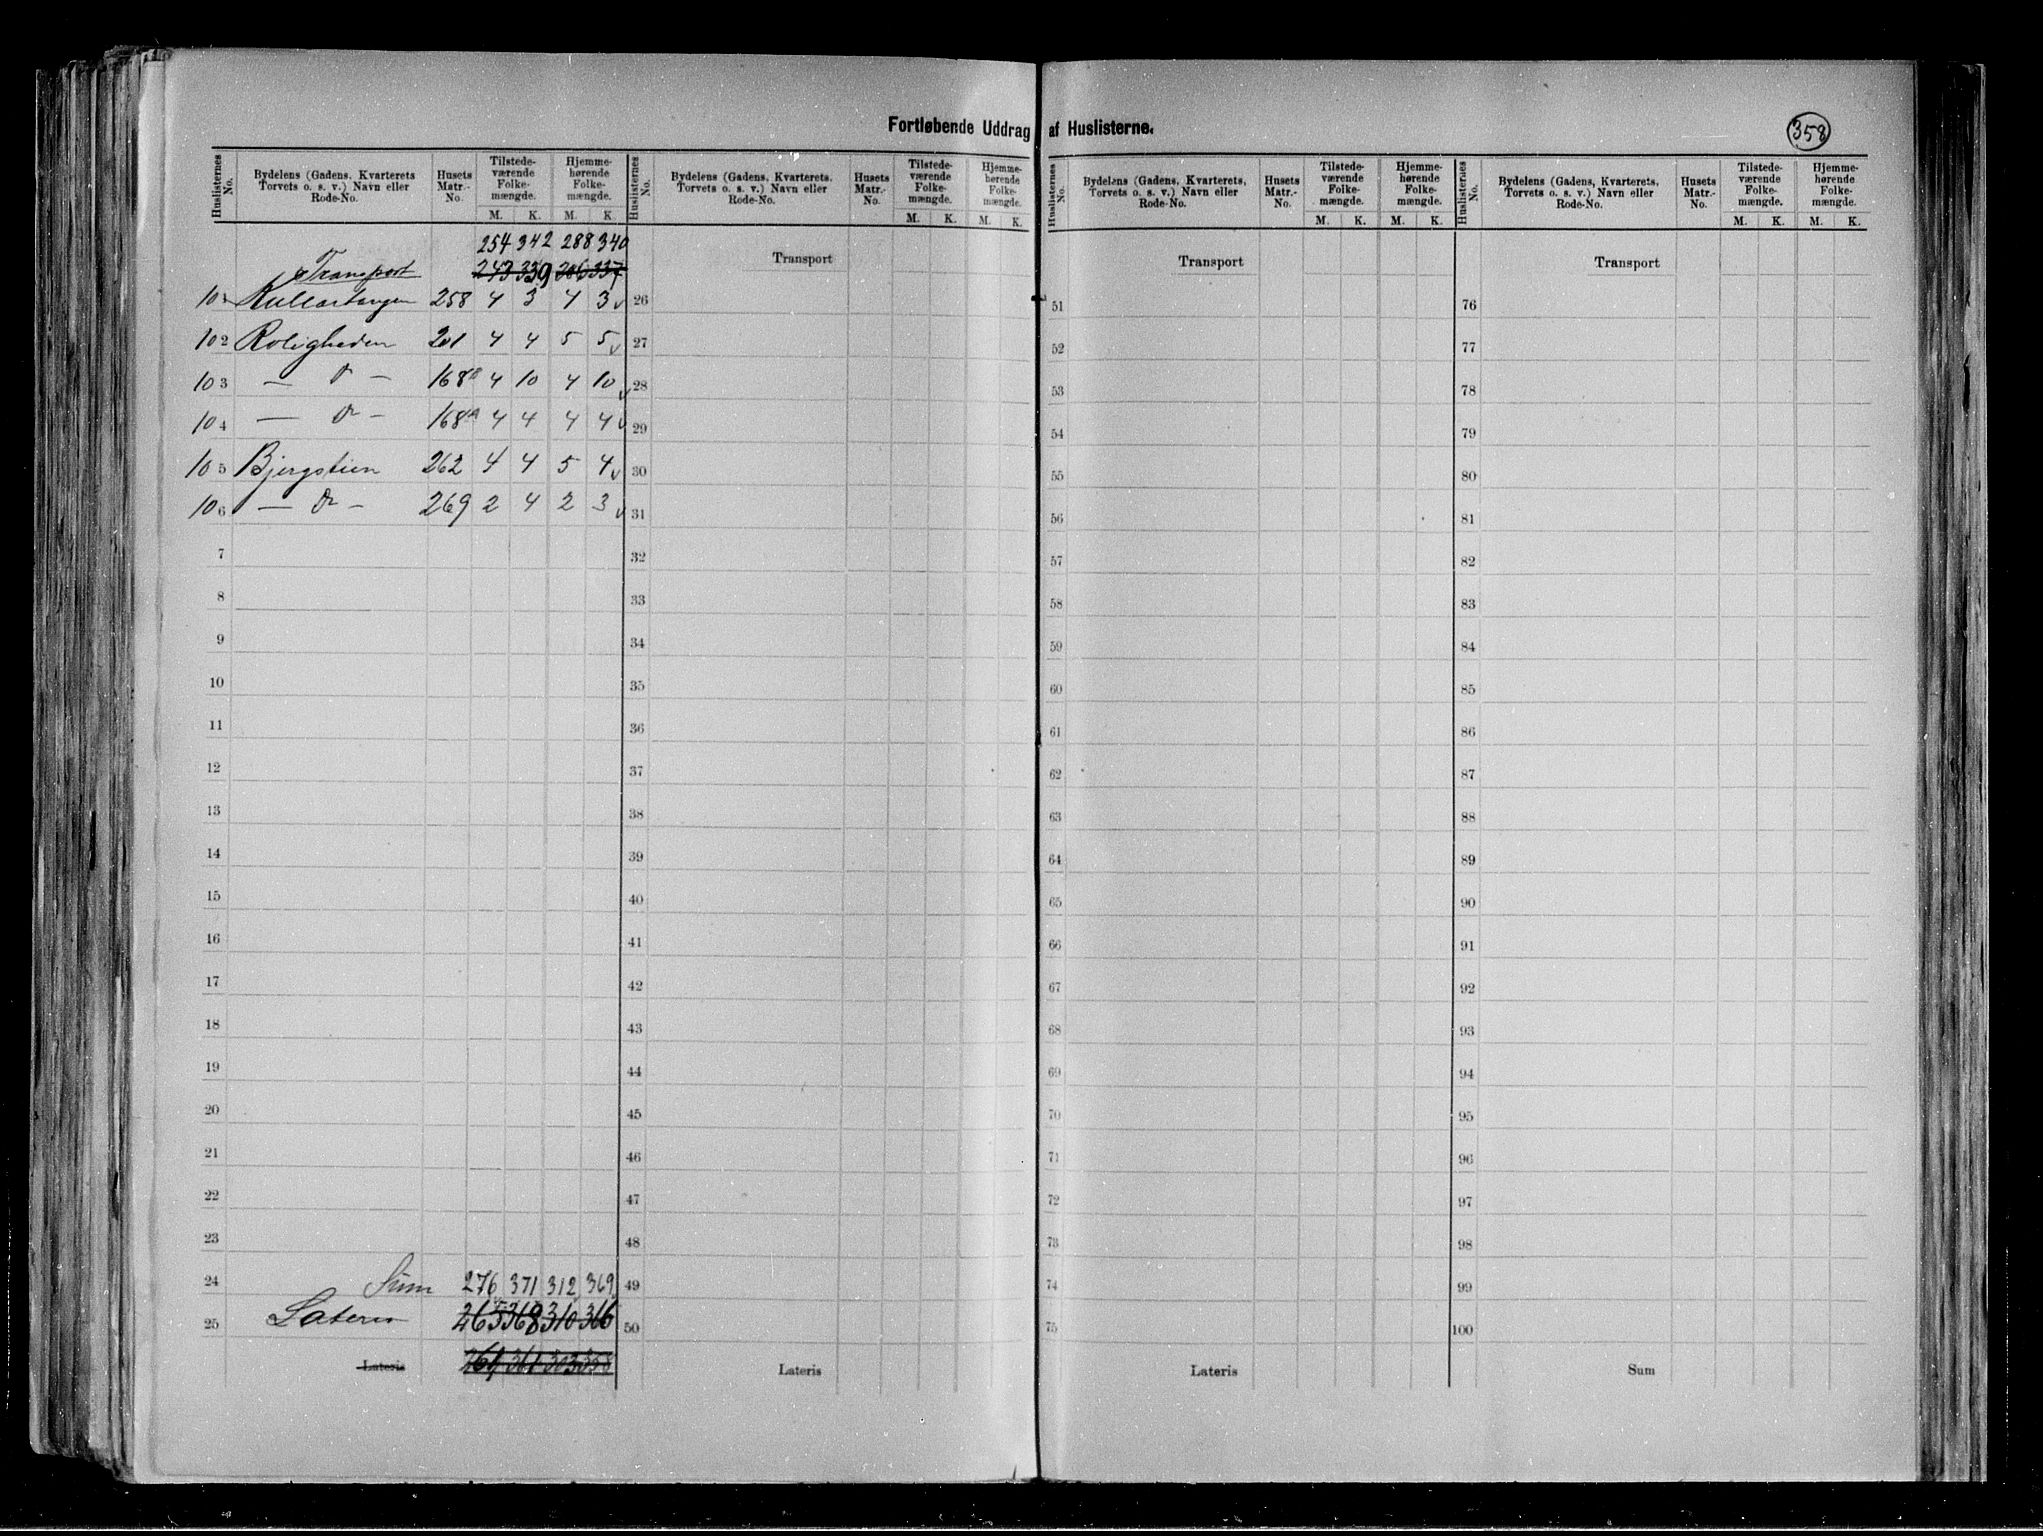 Fortløbende Uddrag af Huslisterne.
358
Huslisternes No. Bydelens (Gadens, Kvarterets Torvets o. s. v.) Navn eller Rode-No. Husets Matr.-No. Tilstede-værende Folke-mængde. M. K. Hjemme-hørende Folke-mængde. M. K.
254 342 288 340
Transport 243 339 286 337
101 258 4 3 4 3 v
102 Roligheden 201 4 4 5 5 v
103 — do — 168B 4 10 4 10 v
104 — do — 168A 4 4 4 4 v
105 Bjergstien 262 4 4 5 4 v
106 — do — 269 2 4 2 3 v
7
8
9
10
11
12
13
14
15
16
17
18
19
20
21
22
23
24 Sum 276 371 312 369
25 Lateris 265 368 310 366
Lateris 261 361 303 358
Huslisternes No. Bydelens (Gadens, Kvarterets, Torvets o. s. v.) Navn eller Rode-No. Husets Matr.-No. Tilstede-værende Folke-mængde. M. K. Hjemme-hørende Folke-mængde. M. K.
Transport
26
27
28
29
30
31
32
33
34
35
36
37
38
39
40
41
42
43
44
45
46
47
48
49
50
Lateris
Huslisternes No. Bydelens (Gadens, Kvarterets, Torvets o. s. v.) Navn eller Rode-No. Husets Matr.-No. Tilstede-værende Folke-mængde. M. K. Hjemme-hørende Folke-mængde. M. K.
Transport
51
52
53
54
55
56
57
58
59
60
61
62
63
64
65
66
67
68
69
70
71
72
73
74
75
Lateris
Huslisternes No. Bydelens (Gadens, Kvarterets, Torvets o. s. v.) Navn eller Rode-No. Husets Matr.-No. Tilstede-værende Folke-mængde. M. K. Hjemme-hørende Folke-mængde. M. K.
Transport
76
77
78
79
80
81
82
83
84
85
86
87
88
89
90
91
92
93
94
95
96
97
98
99
100
Sum